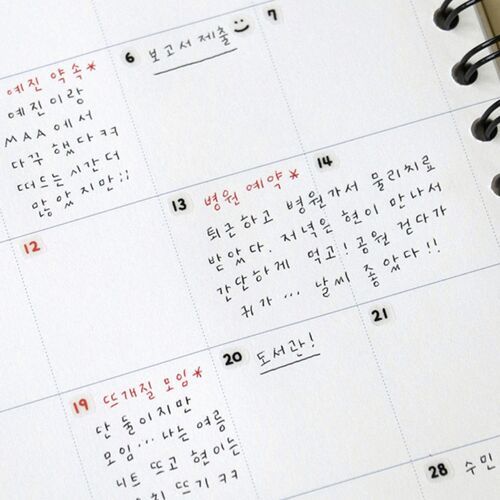 예진 약속*
예진이랑
MAA에서
다꾸 했다ㅋㅋ
떠드는 시간 더
많았지만;;
6 보고서 제출
7
12
13 병원 예약*
14
퇴근하고 병원가서 물리치료
받았다. 저녁은 현이 만나서
간단하게 먹고! 공원 걷다가
귀가... 날씨 좋았다!!
19 뜨개질 모임*
단 둘이지만
모임... 나는 여름
니트 뜨고 현이는
뜨기 ㅋㅋ
20 도서관!
21
28 수민